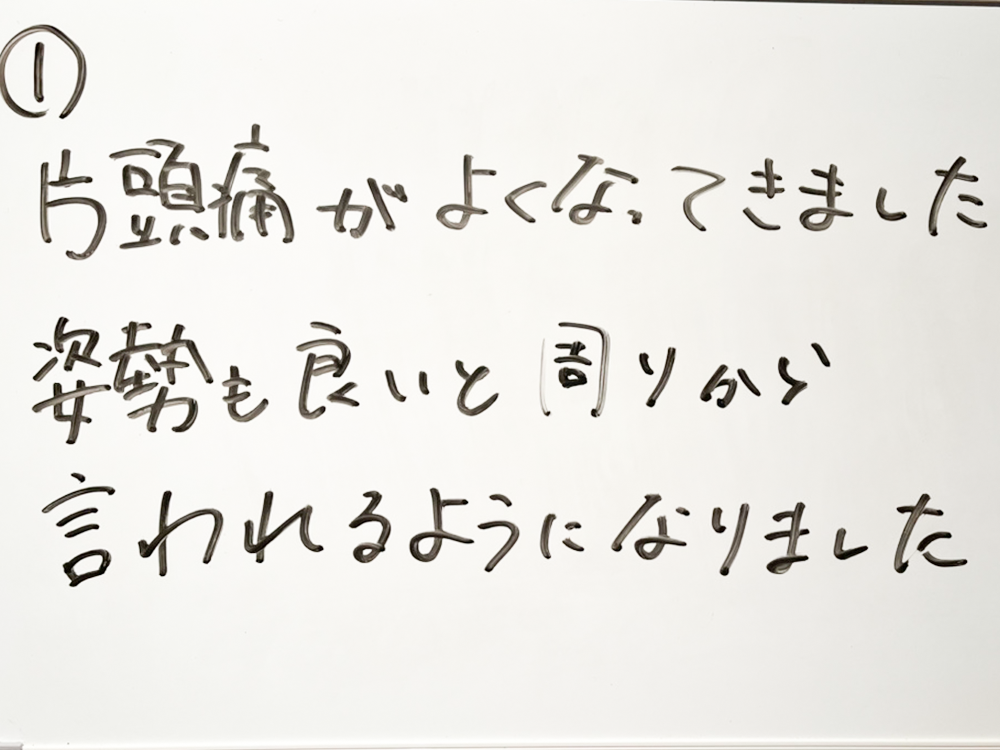 ①
片頭痛がよくなってきました
姿勢も良いと周りから
言われるようになりました